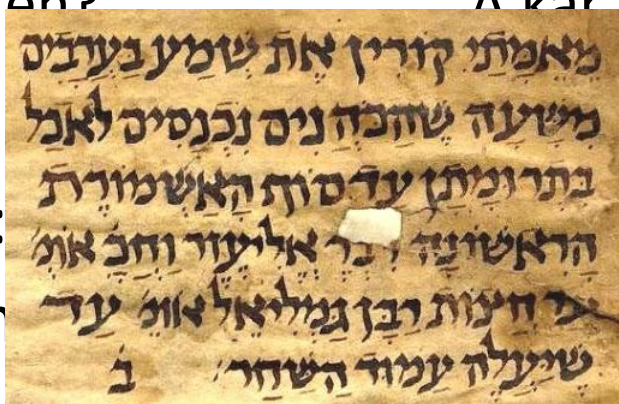 מאמתי קורין את שמע בערבים
משעה שהכהנים נכנסים לאכל
בתרומתן עד סוף האשמורת
הראשונה דבר אליעזר וחכ׳ אומ׳
עד חצות רבן גמליאל אומ׳ עד
שיעלה עמוד השחר ב